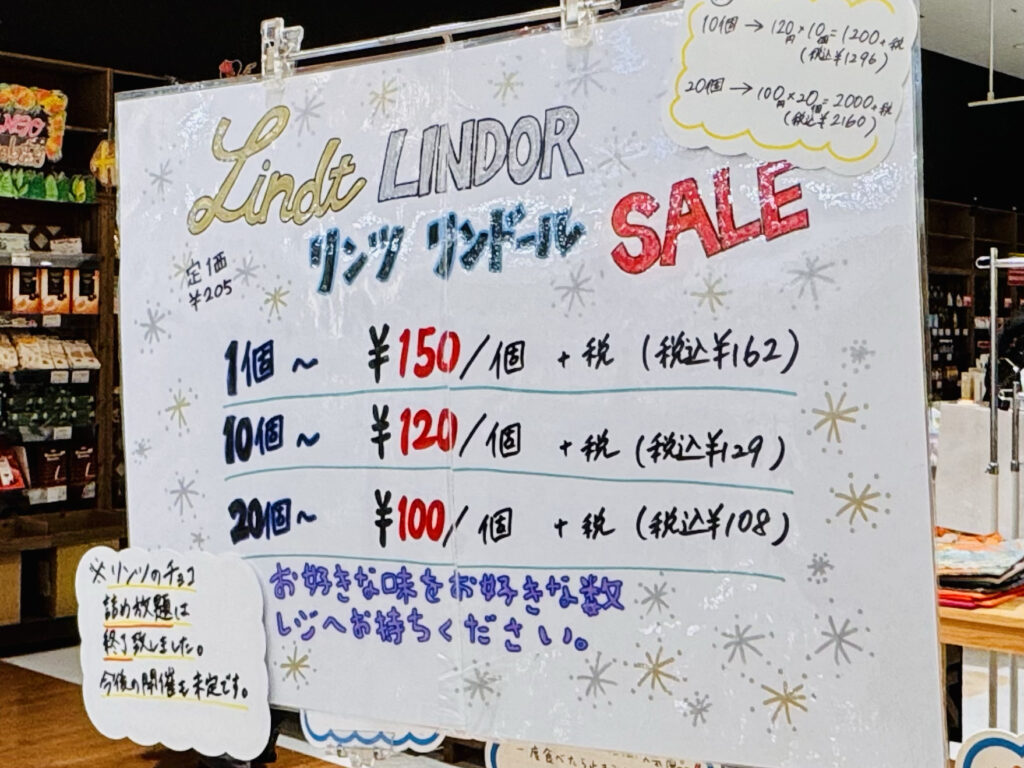 10個 → 120円×10個=1200+税
(税込¥1296)
20個 → 100円×20個=2000+税
(税込¥2160)
Lindt LINDOR
リンツ リンドール SALE
定価
¥205
1個~ ¥150/個 +税 (税込¥162)
10個~ ¥120/個 +税 (税込¥129)
20個~ ¥100/個 +税 (税込¥108)
お好きな味をお好きな数
レジへお持ちください。
※リンツのチョコ
詰め放題は
終了致しました。
今後の開催も未定です。
一度食べたら